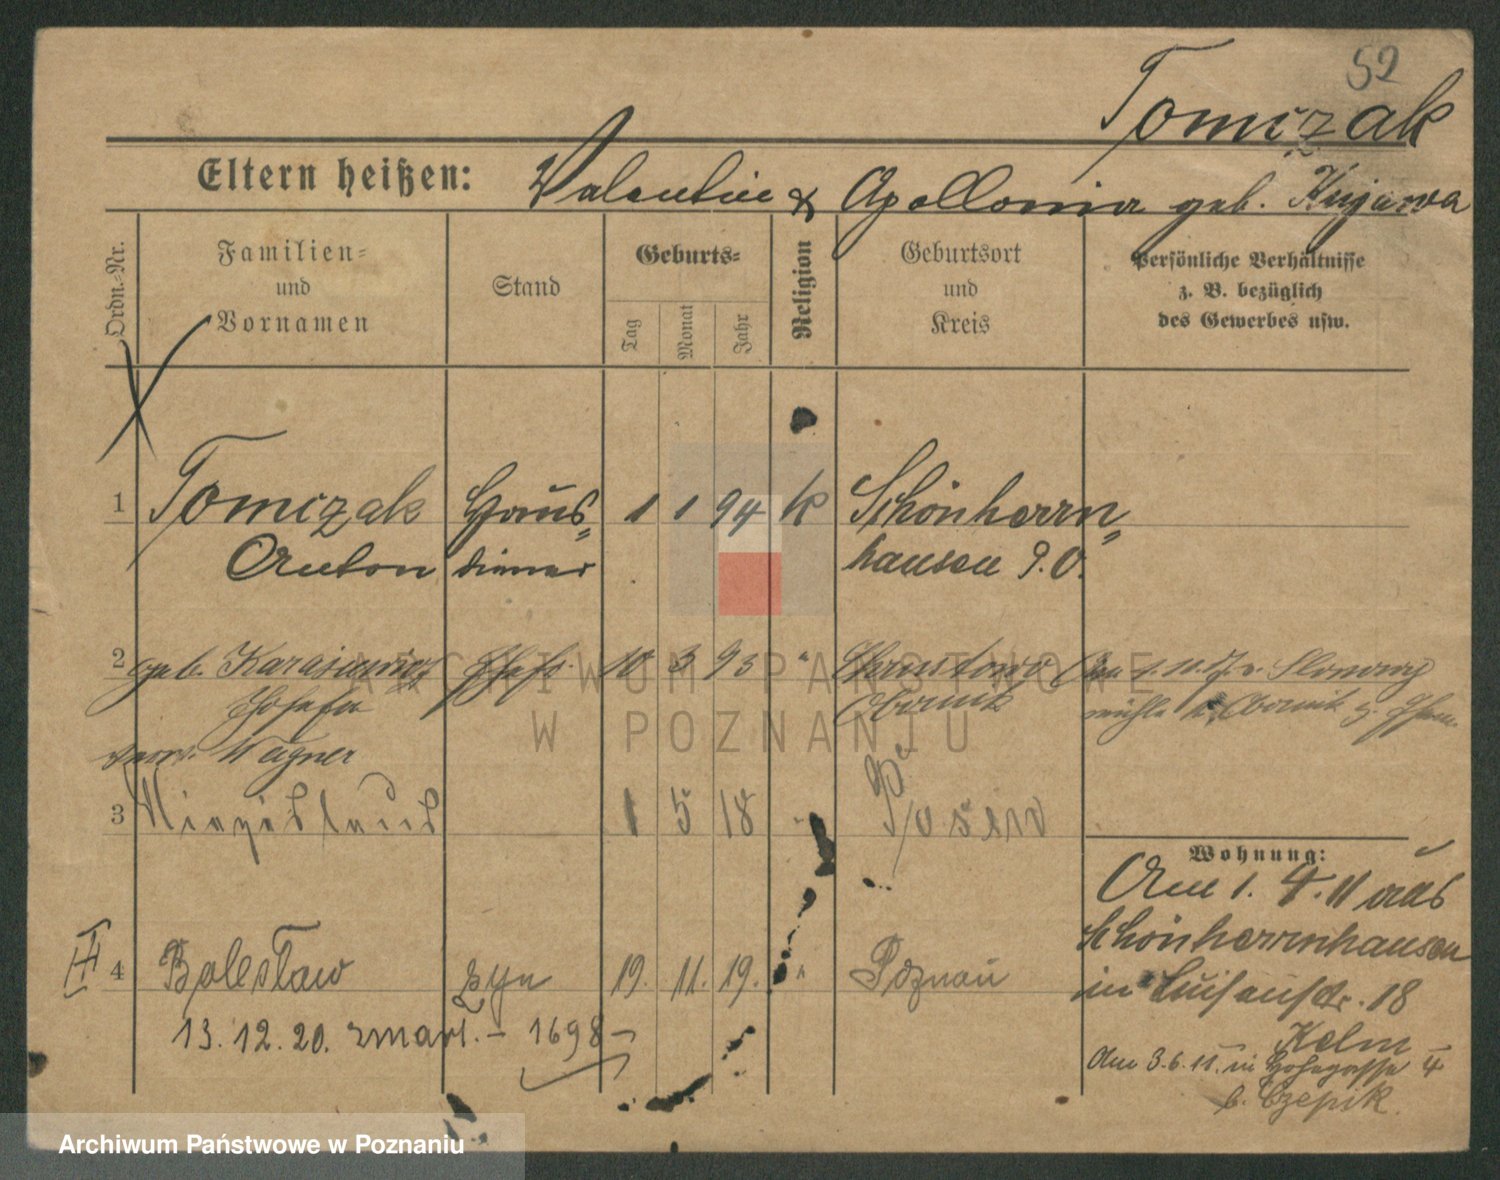 52
Tomczak
Eltern heißen: Valentin & Apollonia geb. Kujawa
Ordn.-Nr.
Familien-
und
Vornamen
Stand
Geburts-
Tag
Monat
Jahr
Religion
Geburtsort
und
Kreis
Persönliche Verhältnisse
z. B. bezüglich
des Gewerbes usw.
1 Tomczak Haus- 1 1 94 K Schönherrn-
Anton diener hausen P.O.
2 geb. Karasiewicz Ehefr. 10 3 93 "
Josefa Obornik
verw. Wagner
mühle Obornik
3 1 5 18 " Posen
4 Bolesław syn 19. 11. 19. " Poznań
13.12.20. zmarł. - 1698 -
Wohnung:
Am 1. 4. 11 aus
Schönherrnhausen
in Luisenstr. 18
Kelm
Am 3.6.11. in Hohegasse 4
b. Czepik
ARCHIWUM PAŃSTWOWE
W POZNANIU
Archiwum Państwowe w Poznaniu